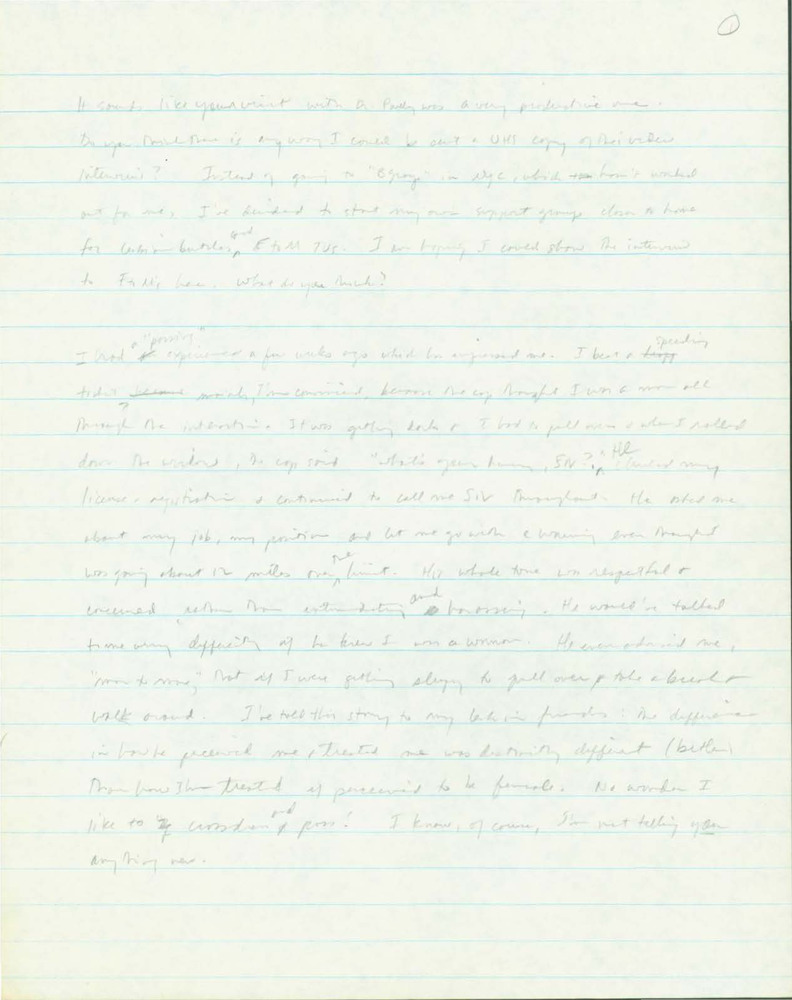 1
It sounds like your visit with Dr. Pauly was a very productive one.
Do you think there is any way I could be sent a VHS copy of the video
interview? Instead of going to "B group" in NYC, which hasn't worked
out for me, I've decided to start my own support group closer to home
for lesbian butches, and F to M TVs. I am hoping I could show the interview
to F to Ms here. What do you think?
I had a "passing" experience a few weeks ago which has impressed me. I beat a speeding
ticket mainly, I'm convinced, because the cop thought I was a man all
through the interaction. It was getting dark & I had to pull over & when I rolled
down the window, the cop said "what's your hurry, Sir?" He checked my
license & registration & continued to call me Sir throughout. He asked me
about my job, my position and let me go with a warning even though I
was going about 12 miles over the limit. His whole tone was respectful &
concerned, rather than intimidating and harassing. He would've talked
to me very differently if he knew I was a woman. He even advised me,
"man to man," that if I were getting sleepy to pull over & take a break &
walk around. I've told this story to my lesbian friends: the difference
in how he perceived me & treated me was distinctly different (better)
than how I'm treated if perceived to be female. No wonder I
like to crossdress and pass! I know, of course, I'm not telling you
anything new.